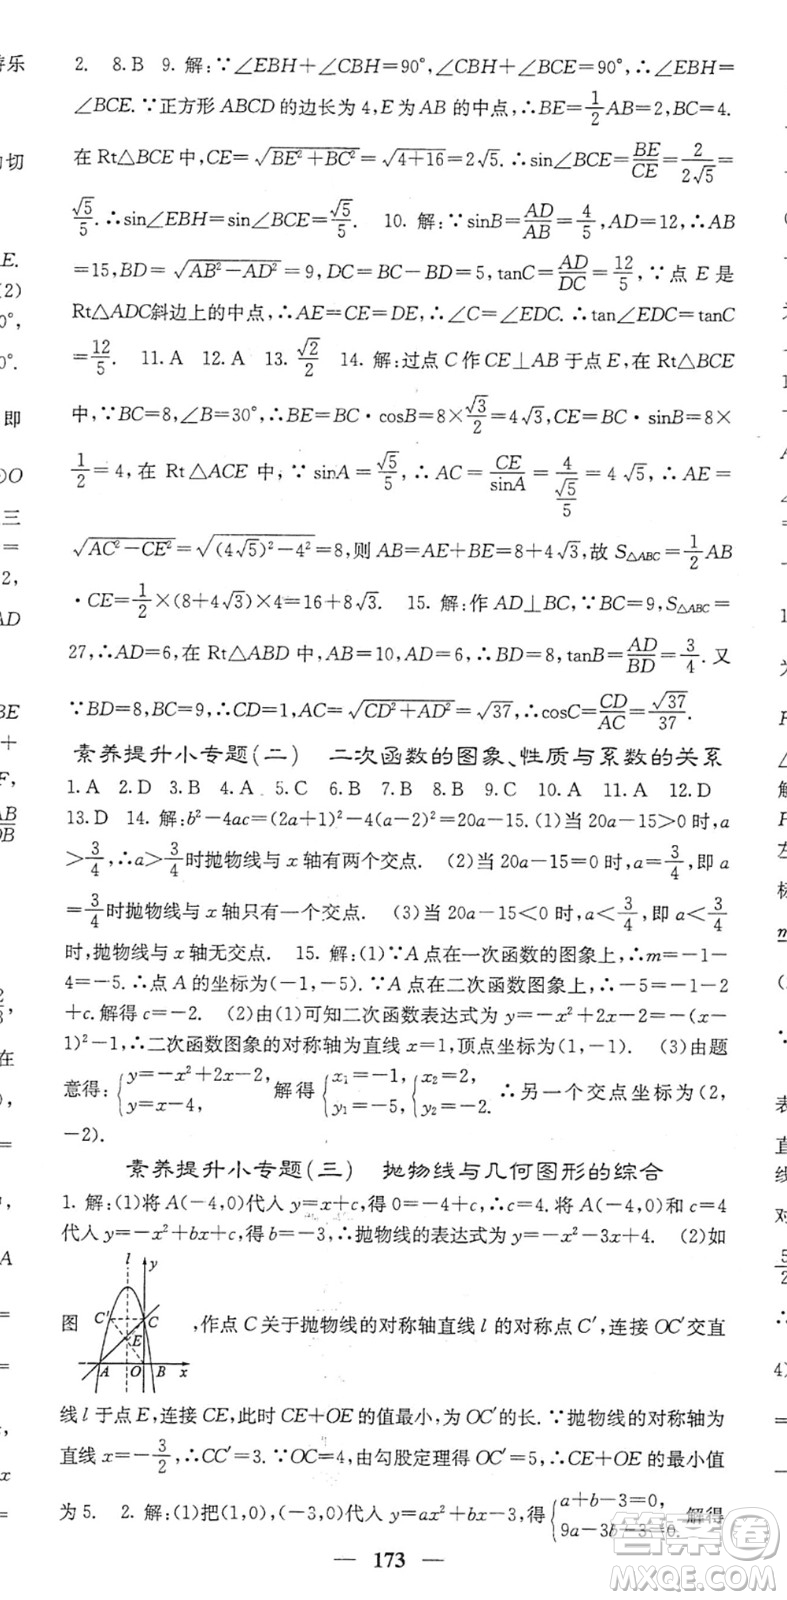 2. 8.B 9. 解:∵∠EBH+∠CBH=90°,∠BCE+∠CBH=90°,∴∠EBH=
∠BCE.∵正方形ABCD的边长为4,E为AB的中点,∴BE=1/2AB=2,BC=4.
在Rt△BCE中,CE=√(BE²+BC²)=√(4+16)=2√5.∴sin∠BCE=BE/CE=2/(2√5)=
√5/5.∴sin∠EBH=sin∠BCE=√5/5. 10. 解:∵sinB=AD/AB=4/5,AD=12,∴AB
=15,BD=√(AB²-AD²)=9,DC=BC-BD=5,tanC=AD/DC=12/5,∵点E是
Rt△ADC斜边上的中点,∴AE=CE=DE,∴∠C=∠EDC.∴tan∠EDC=tanC
=12/5. 11.A 12.A 13.√2/2 14.解:过点C作CE⊥AB于点E,在Rt△BCE
中,∵BC=8,∠B=30°,∴BE=BC·cosB=8×√3/2=4√3,CE=BC·sinB=8×
1/2=4,在Rt△ACE中,∵sinA=√5/5,∴AC=CE/sinA=4/(√5/5)=4√5,∴AE=
√(AC²-CE²)=√((4√5)²-4²)=8,则AB=AE+BE=8+4√3,故S△ABC=1/2AB
·CE=1/2×(8+4√3)×4=16+8√3. 15. 解:作AD⊥BC,∵BC=9,S△ABC=
27,∴AD=6,在Rt△ABD中,AB=10,AD=6,∴BD=8,tanB=AD/BD=3/4.又
∵BD=8,BC=9,∴CD=1,AC=√(CD²+AD²)=√37,∴cosC=CD/AC=√37/37.
素养提升小专题(二) 二次函数的图象、性质与系数的关系
1.A 2.D 3.B 4.A 5.C 6.B 7.B 8.B 9.C 10.A 11.A 12.D
13.D 14. 解:b²-4ac=(2a+1)²-4(a-2)²=20a-15.(1)当20a-15>0时,a
>3/4,∴a>3/4时抛物线与x轴有两个交点. (2)当20a-15=0时,a=3/4,即a
=3/4时抛物线与x轴只有一个交点. (3)当20a-15<0时,a<3/4,即a<3/4
时,抛物线与x轴无交点. 15. 解:(1)∵A点在一次函数的图象上,∴m=-1-
4=-5.∴点A的坐标为(-1,-5).∵A点在二次函数图象上,∴-5=-1-2
+c.解得c=-2. (2)由(1)可知二次函数表达式为y=-x²+2x-2=-(x-
1)²-1,∴二次函数图象的对称轴为直线x=1,顶点坐标为(1,-1). (3)由题
意得:{y=-x²+2x-2, y=x-4, 解得{x₁=-1, y₁=-5, {x₂=2, y₂=-2. ∴另一个交点坐标为(2,
-2).
素养提升小专题(三) 抛物线与几何图形的综合
1. 解:(1)将A(-4,0)代入y=x+c,得0=-4+c,∴c=4.将A(-4,0)和c=4
代入y=-x²+bx+c,得b=-3,∴抛物线的表达式为y=-x²-3x+4. (2)如
图 ,作点C关于抛物线的对称轴直线l的对称点C′,连接OC′交直
l y C′ C E A O B x
线l于点E,连接CE,此时CE+OE的值最小,为OC′的长.∵抛物线的对称轴为
直线x=-3/2,∴CC′=3.∵OC=4,由勾股定理得OC′=5,∴CE+OE的最小值
为5. 2. 解:(1)把(1,0),(-3,0)代入y=ax²+bx-3,得{a+b-3=0, 9a-3b-3=0. 解得
— 173 —